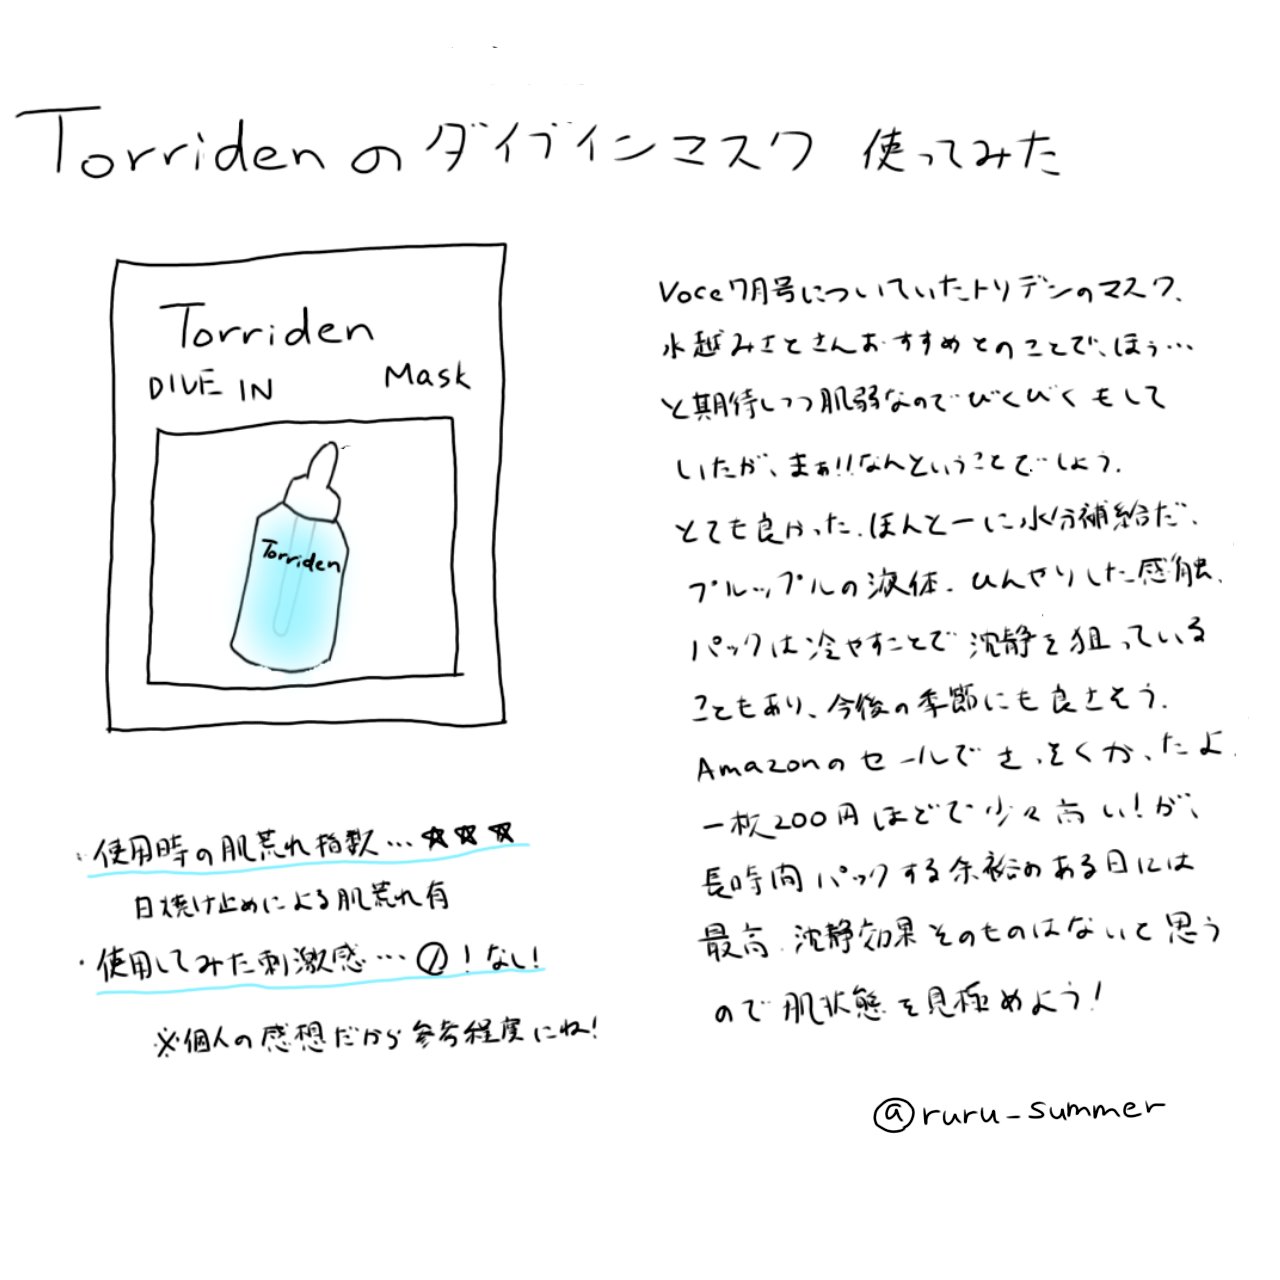 Torridenのダイブインマスク 使ってみた
Torriden
DIVE IN Mask
Torriden
・使用時の肌荒れ指数…☆☆☆
日焼け止めによる肌荒れ有
・使用してみた刺激感…⓪!なし!
※個人の感想だから参考程度にね!
Voce7月号についていたトリデンのマスク、
水越みさとさんおすすめとのことで、ほぅ…
と期待しつつ肌弱なのでびくびくもして
いたが、まぁ!!なんということでしょう.
とても良かった.ほんとーに水分補給だ、
プルップルの液体.ひんやりした感触.
パックは冷やすことで沈静を狙っている
こともあり、今後の季節にも良さそう.
Amazonのセールでさっそくかったよ.
一枚200円ほどで少々高い!が、
長時間パックする余裕のある日には
最高.沈静効果そのものはないと思う
ので肌状態を見極めよう!
@ruru_summer